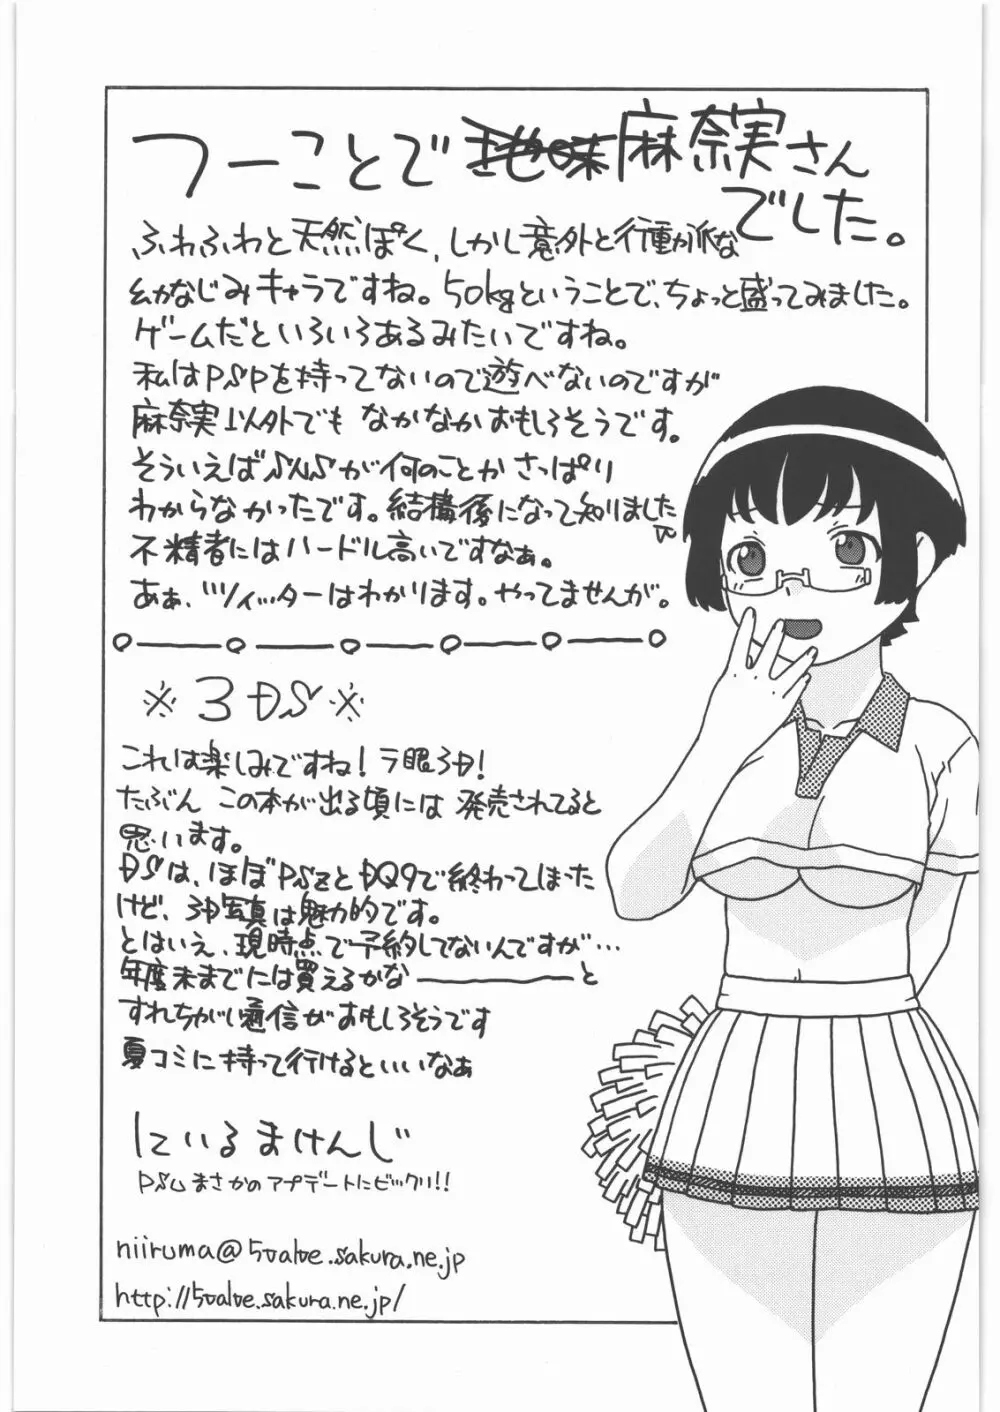 つーことで地味麻奈実さん
でした。
ふわふわと天然ぽく、しかし意外と行動派な
幼なじみキャラですね。50kgということで、ちょっと盛ってみました。
ゲームだといろいろあるみたいですね。
私はPSPを持ってないので遊べないのですが
麻奈実以外でもなかなかおもしろそうです。
そういえばSNSが何のことかさっぱり
わからなかったです。結構後になって知りました
不精者にはハードル高いですなぁ。
あぁ、ツイッターはわかります。やってませんが。
※3DS※
これは楽しみですね!ラ眼3D!
たぶん この本が出る頃には 発売されてると
思います。
DSは、ほぼPSZとDQ9で終わってしまった
けど、3D写真は魅力的です。
とはいえ、現時点で予約してないんですが…
年度末までには買えるかな――――と
すれちがい通信がおもしろそうです
夏コミに持って行けるといいなぁ
にいるまけんじ
PSUまさかのアプデートにビックリ!!
niiruma@5valve.sakura.ne.jp
http://5valve.sakura.ne.jp/